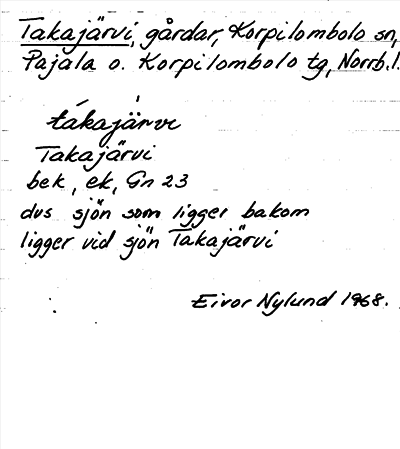 Takajärvi, gårdar, Korpilombolo sn,
Pajala o. Korpilombolo tg, Norrb.l.
tákajärvi
Takajärvi
bek, ek, Gn 23
dvs sjön som ligger bakom
ligger vid sjön Takajärvi
Eivor Nylund 1968.